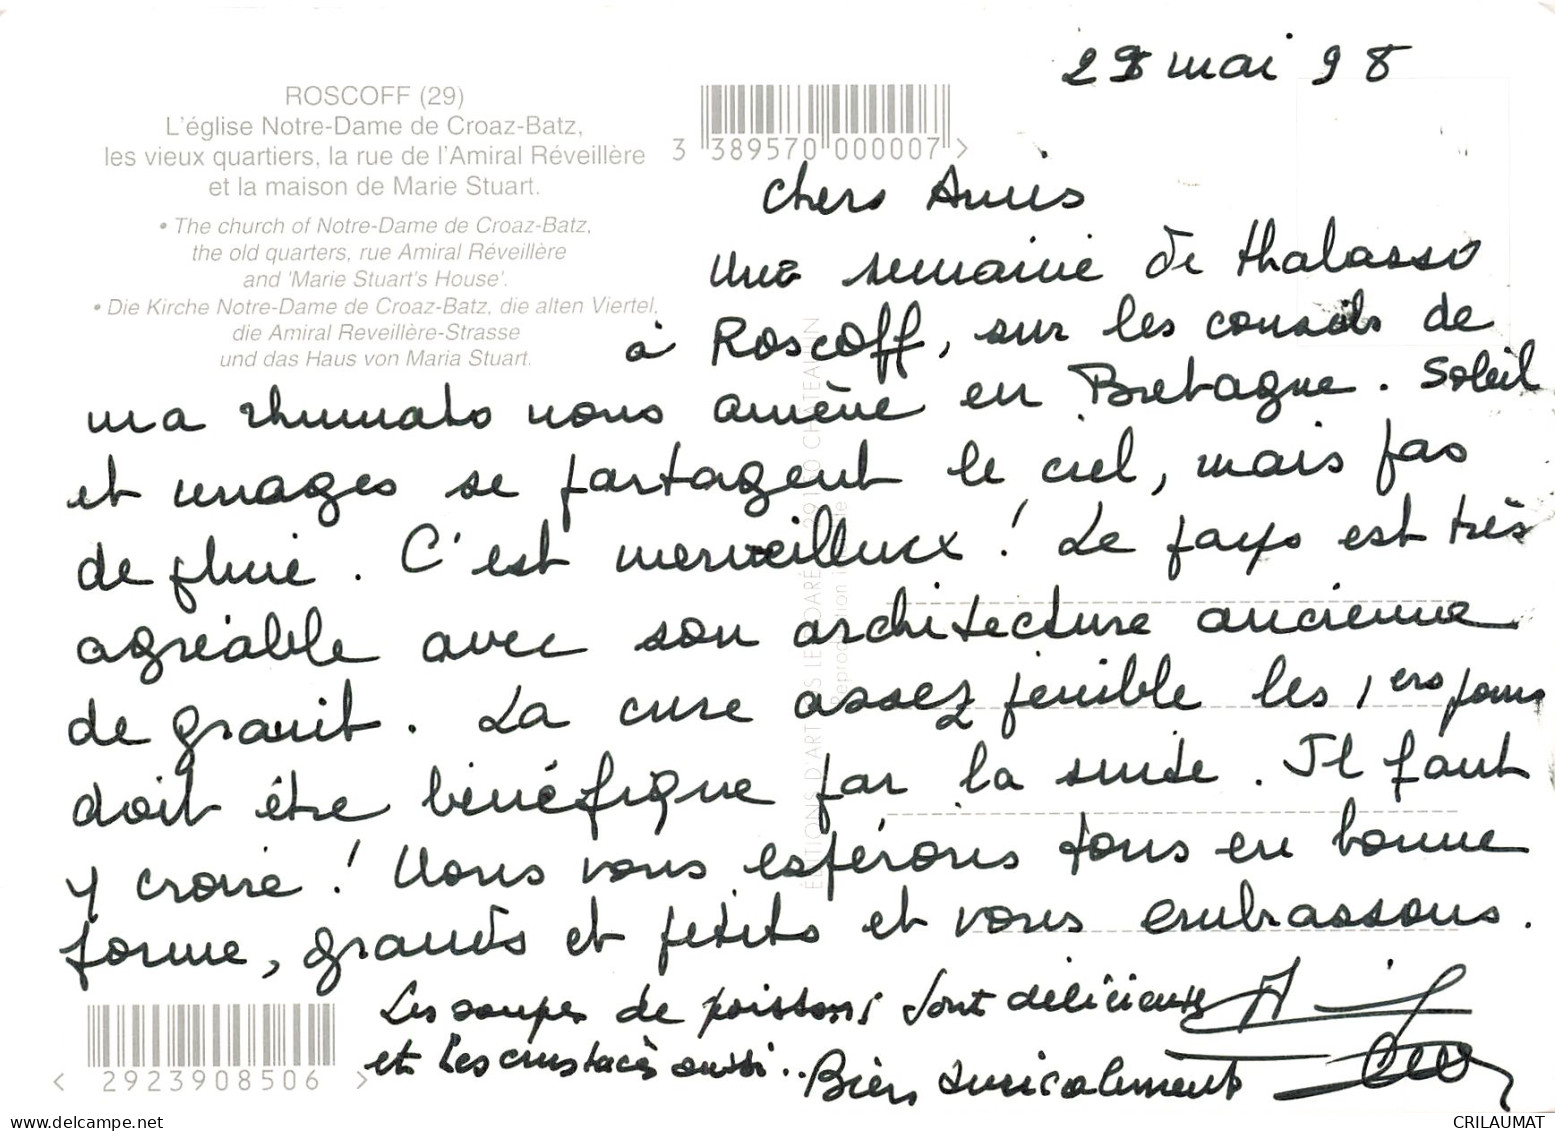 28 mai 98
ROSCOFF (29)
L'église Notre-Dame de Croaz-Batz,
les vieux quartiers, la rue de l'Amiral Réveillère
et la maison de Marie Stuart.
• The church of Notre-Dame de Croaz-Batz,
the old quarters, rue Amiral Réveillère
and 'Marie Stuart's House'.
• Die Kirche Notre-Dame de Croaz-Batz, die alten Viertel,
die Amiral Reveillère-Strasse
und das Haus von Maria Stuart.
3 389570 000007 >
Chers Amis
Une semaine de thalasso
à Roscoff, sur les conseils de
ma rhumato nous amène en Bretagne. Soleil
et nuages se partagent le ciel, mais pas
de pluie. C'est merveilleux ! Le pays est très
agréable avec son architecture ancienne
de granit. La cure assez pénible les 1ers jours
doit être bénéfique par la suite. Il faut
y croire ! Nous vous espérons tous en bonne
forme, grands et petits et vous embrassons.
Les soupes de poissons sont délicieuses
et les crustacés aussi.. Bien amicalement
< 2923908506 >
ÉDITIONS D'ART JOS LE DOARÉ 29150 CHATEAULIN
Reproduction
CRILAUMAT